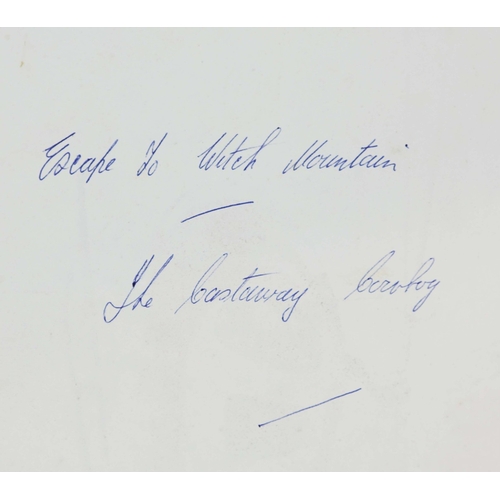 Escape To Witch Mountain
The Castaway Cowboy